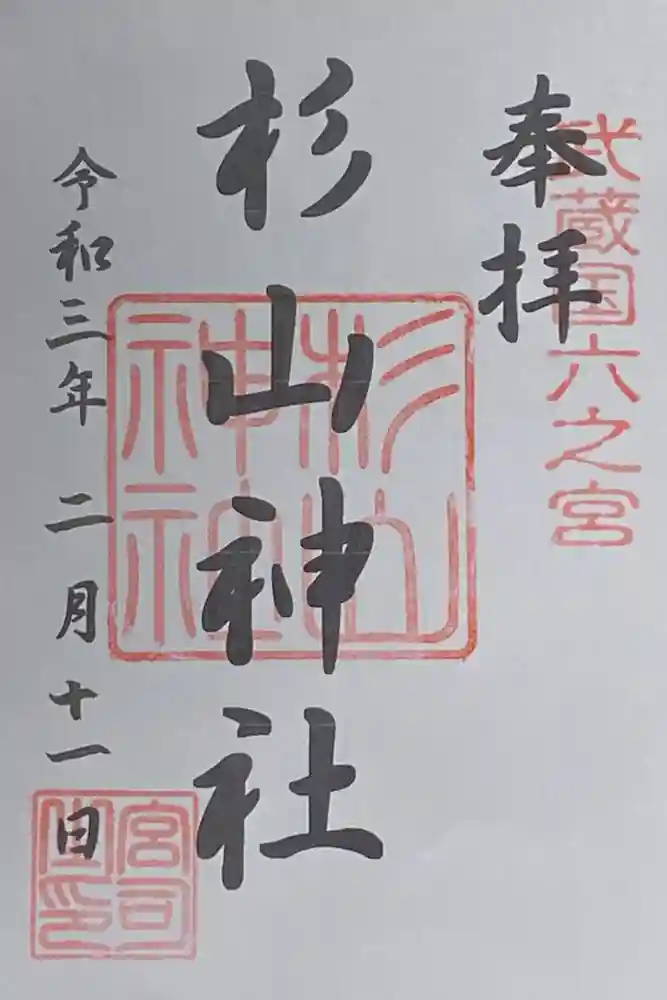 武蔵国六之宮
奉拝
杉山神社
杉山神社
令和三年 二月十一日
宮司之印